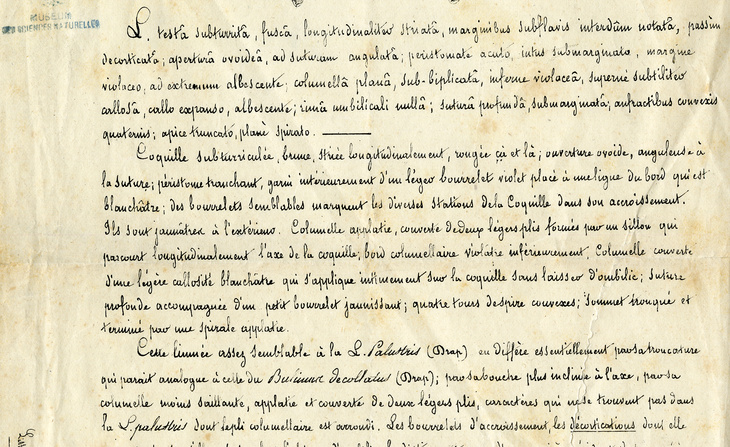 MUSEUM
DES SCIENCES NATURELLES
L. testâ subturritâ, fuscâ, longitudinaliter striatâ, marginibus subflavis interdùm notatâ, passìm
decorticatâ; aperturâ ovoideâ, ad suturam angulatâ; peristomate acuto, intus submarginato, margine
violaceo, ad extremum albescente; columellâ planâ, sub-biplicatâ, inferne violaceâ, supernè subtiliter
callosâ, callo expanso, albescente; rimâ umbilicali nullâ; suturâ profundâ, submarginatâ; anfractibus convexis
quaternis; apice truncato, planè spirato.
Coquille subturriculée, brune, striée longitudinalement, rongée çà et là; ouverture ovoïde, anguleuse à
la suture; péristome tranchant, garni intérieurement d'un léger bourrelet violet placé à une ligne du bord qui est
blanchâtre; des bourrelets semblables marquent les diverses stations de la Coquille dans son accroissement.
Ils sont jaunâtres à l'extérieur. Columelle applatie, couverte de deux légers plis formés par un sillon qui
parcourt longitudinalement l'axe de la coquille; bord columellaire violâtre inférieurement. Columelle couverte
d'une légère callosité blanchâtre qui s'applique intimement sur la coquille sans laisser d'ombilic; suture
profonde accompagnée d'un petit bourrelet jaunissant; quatre tours de spire convexes; sommet tronqué et
terminé par une spirale applatie.
Cette limnée assez semblable à la L. Palustris (Drap) en diffère essentiellement par sa troncature
qui parait analogue à celle du Bulimus decollatus (Drap); par sa bouche plus inclinée à l'axe, par sa
columelle moins saillante, applatie et couverte de deux légers plis, caractères qui ne se trouvent pas dans
la L. palustris dont le pli columellaire est arrondi. Les bourrelets d'accroissement, les décortications dont elle